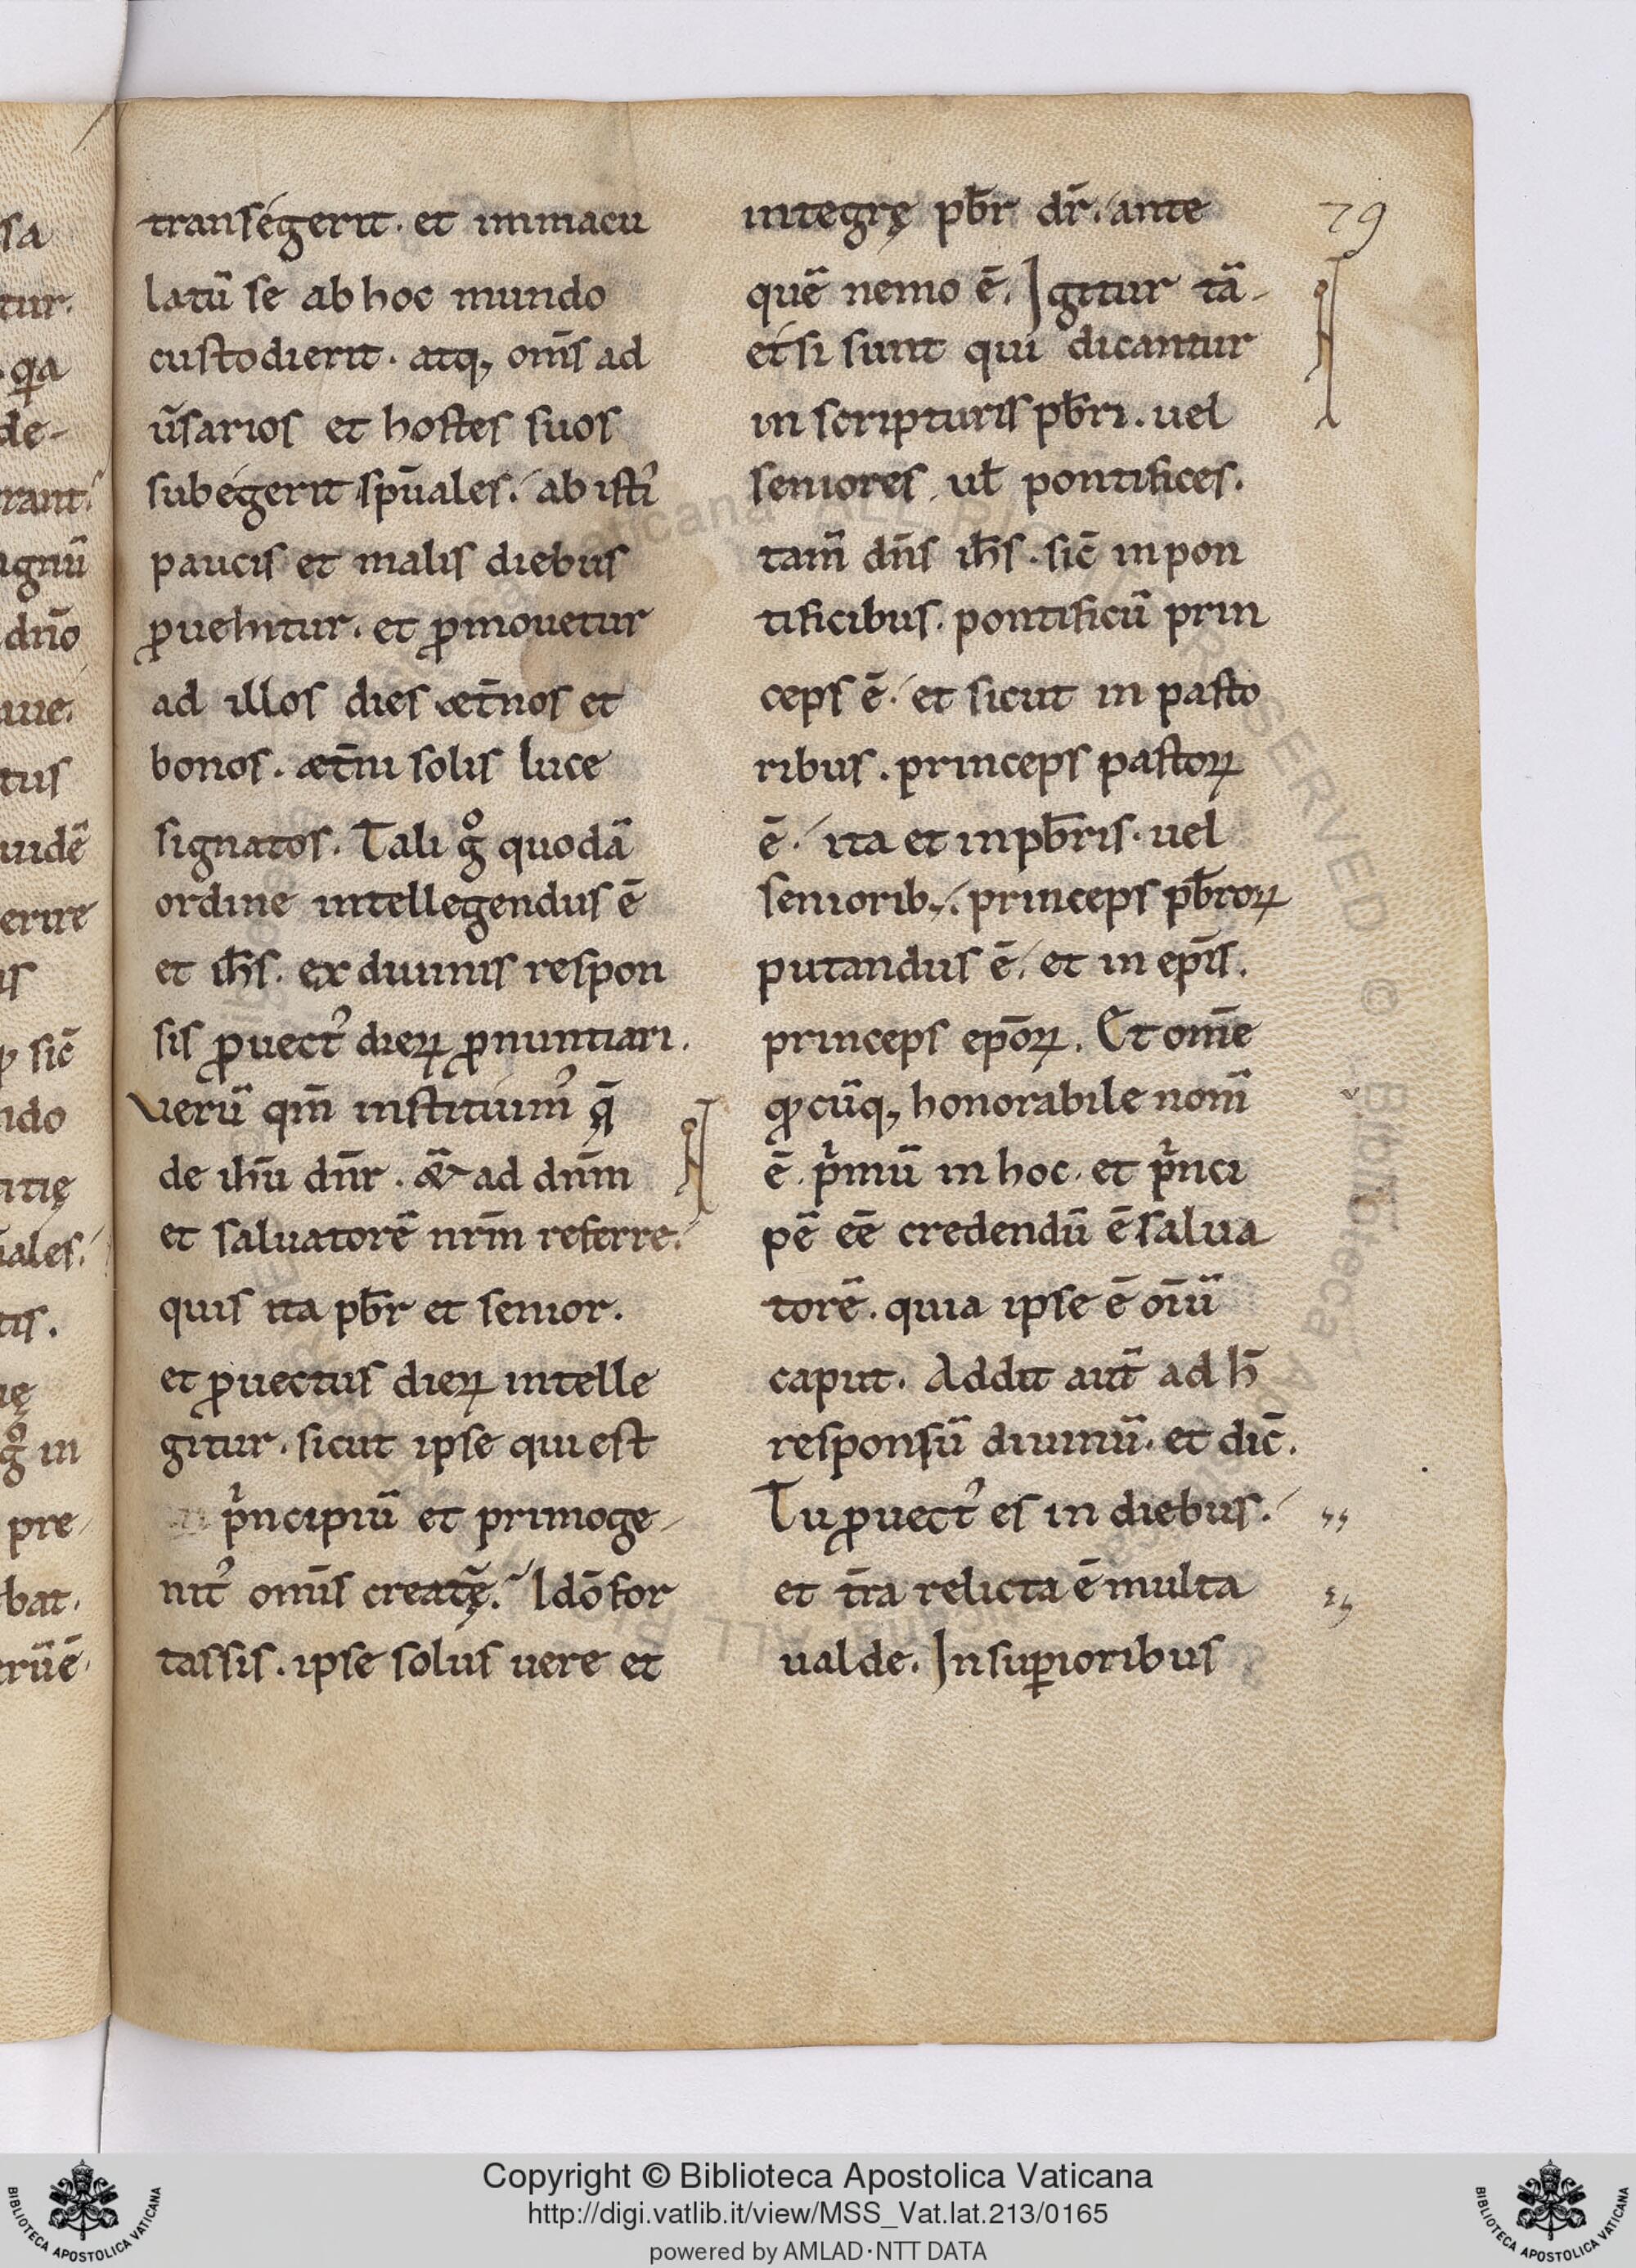 transegerit. et inmacu
latū se ab hoc mundo
custodierit. atq; om̄s ad
ūsarios et hostes suos
subegerit sp̄uales. ab isti᾽
paucis et malis diebus
ꝓuehitur. et ꝓmouetur
ad illos dies æt̄nos et
bonos. æt̄ni solis luce
signatos. Tali gͦ quodā
ordine intellegendus ē
et ih̄s. ex diuinis respon
sis ꝓuect᾽ dieꝝ ꝓnuntiari.
Uerū qm̄ instituim᾽ q̄
de ih̄u dn̄r. &̄ ad dn̄m
et saluatorē nr̄m referre.
quis ita pb̄r et senior.
et ꝓuectus dieꝝ intelle
gitur. sicut ipse qui est
pͥncipiū et primoge-
nit᾽ om̄is creatę̄. Idō for
tassis. ipse solus uere et
integrę pb̄r dr̄. ante
quē nemo ē. Igitur tā-
etsi sunt qui dicantur
in scripturis pb̄ri. uel
seniores ul̄ pontifices.
tam̄ dn̄s ih̄s. sic̄ in pon
tificibus. pontificū prin
ceps ē. et sicut in pasto
ribus. princeps pastoꝝ
ē. ita et in pb̄ris. uel
seniorib;. princeps pb̄roꝝ
putandus ē. et in ep̄is.
princeps ep̄oꝝ. Et om̄e
qͦcūq; honorabile nom̄
ē. pͥmū in hoc. et pͥnci
pē eē credendū ē salua
torē. quia ipse ē oīū
caput. Addit aut̄ ad h̄
responsū diuinū. et dic̄.
Tu ꝓuect᾽ es in diebus.
et t̄ra relicta ē multa
ualde. In suꝑioribus
79
sa
tur.
qͥa
de-
rant.
agnū
dn̄o
uue.
tus
uidē
erire
is
sic̄
ndo
itię
uales.
tis.
ię
gͦ in
pre-
bat.
erūē.
Copyright © Biblioteca Apostolica Vaticana
http://digi.vatlib.it/view/MSS_Vat.lat.213/0165
powered by AMLAD·NTT DATA
BIBLIOTECA APOSTOLICA VATICANA
BIBLIOTECA APOSTOLICA VATICANA